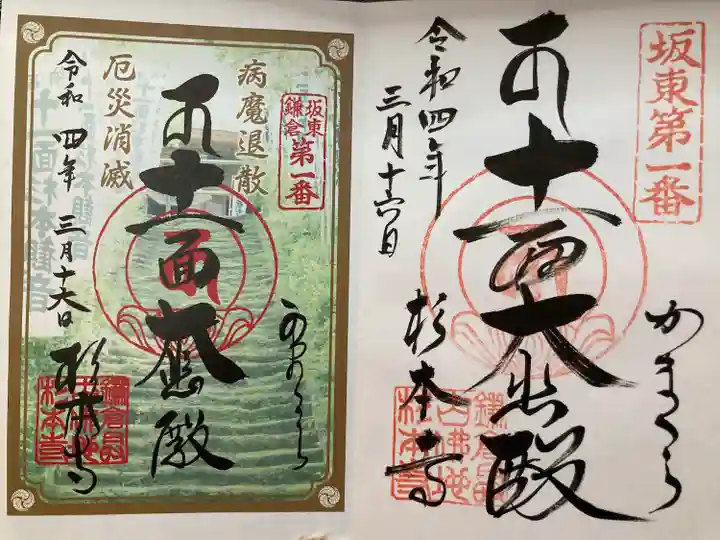 坂東第一番
十一面大悲殿
令和四年
三月十六日
かまくら
杉本寺
病魔退散
厄災消滅
坂東
鎌倉
第一番
十一面大悲殿
令和四年 三月十六日
かまくら
杉本寺